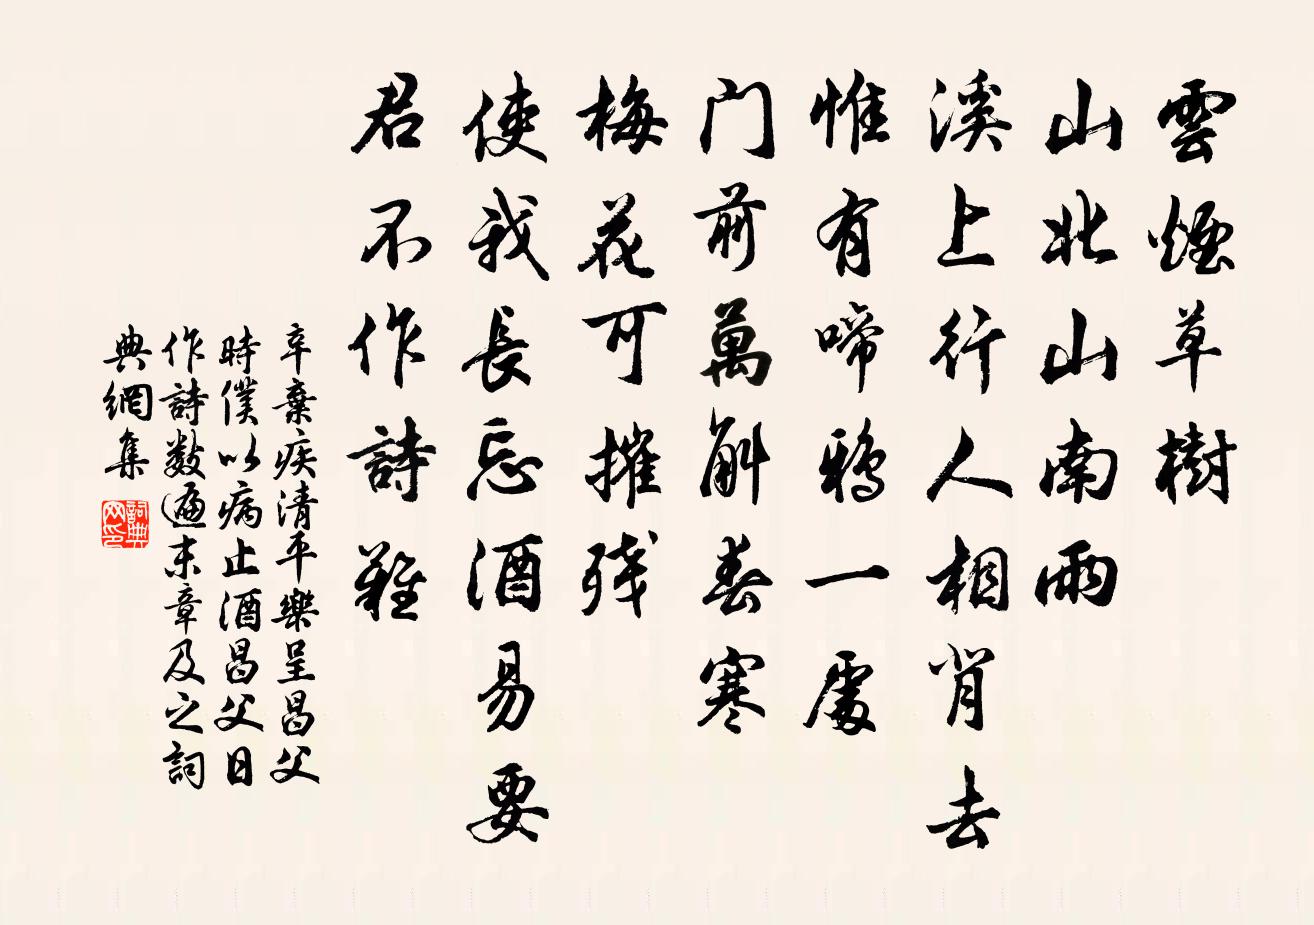 雲煙草樹
山北山南雨
溪上行人相背去
惟有啼鴉一處
门前萬斛春寒
梅花可摧残
使我長忘酒易
要君不作詩難
辛棄疾清平樂呈昌父
時僕以病止酒昌父日
作詩数遍末章及之詞
典網集
詞典网印